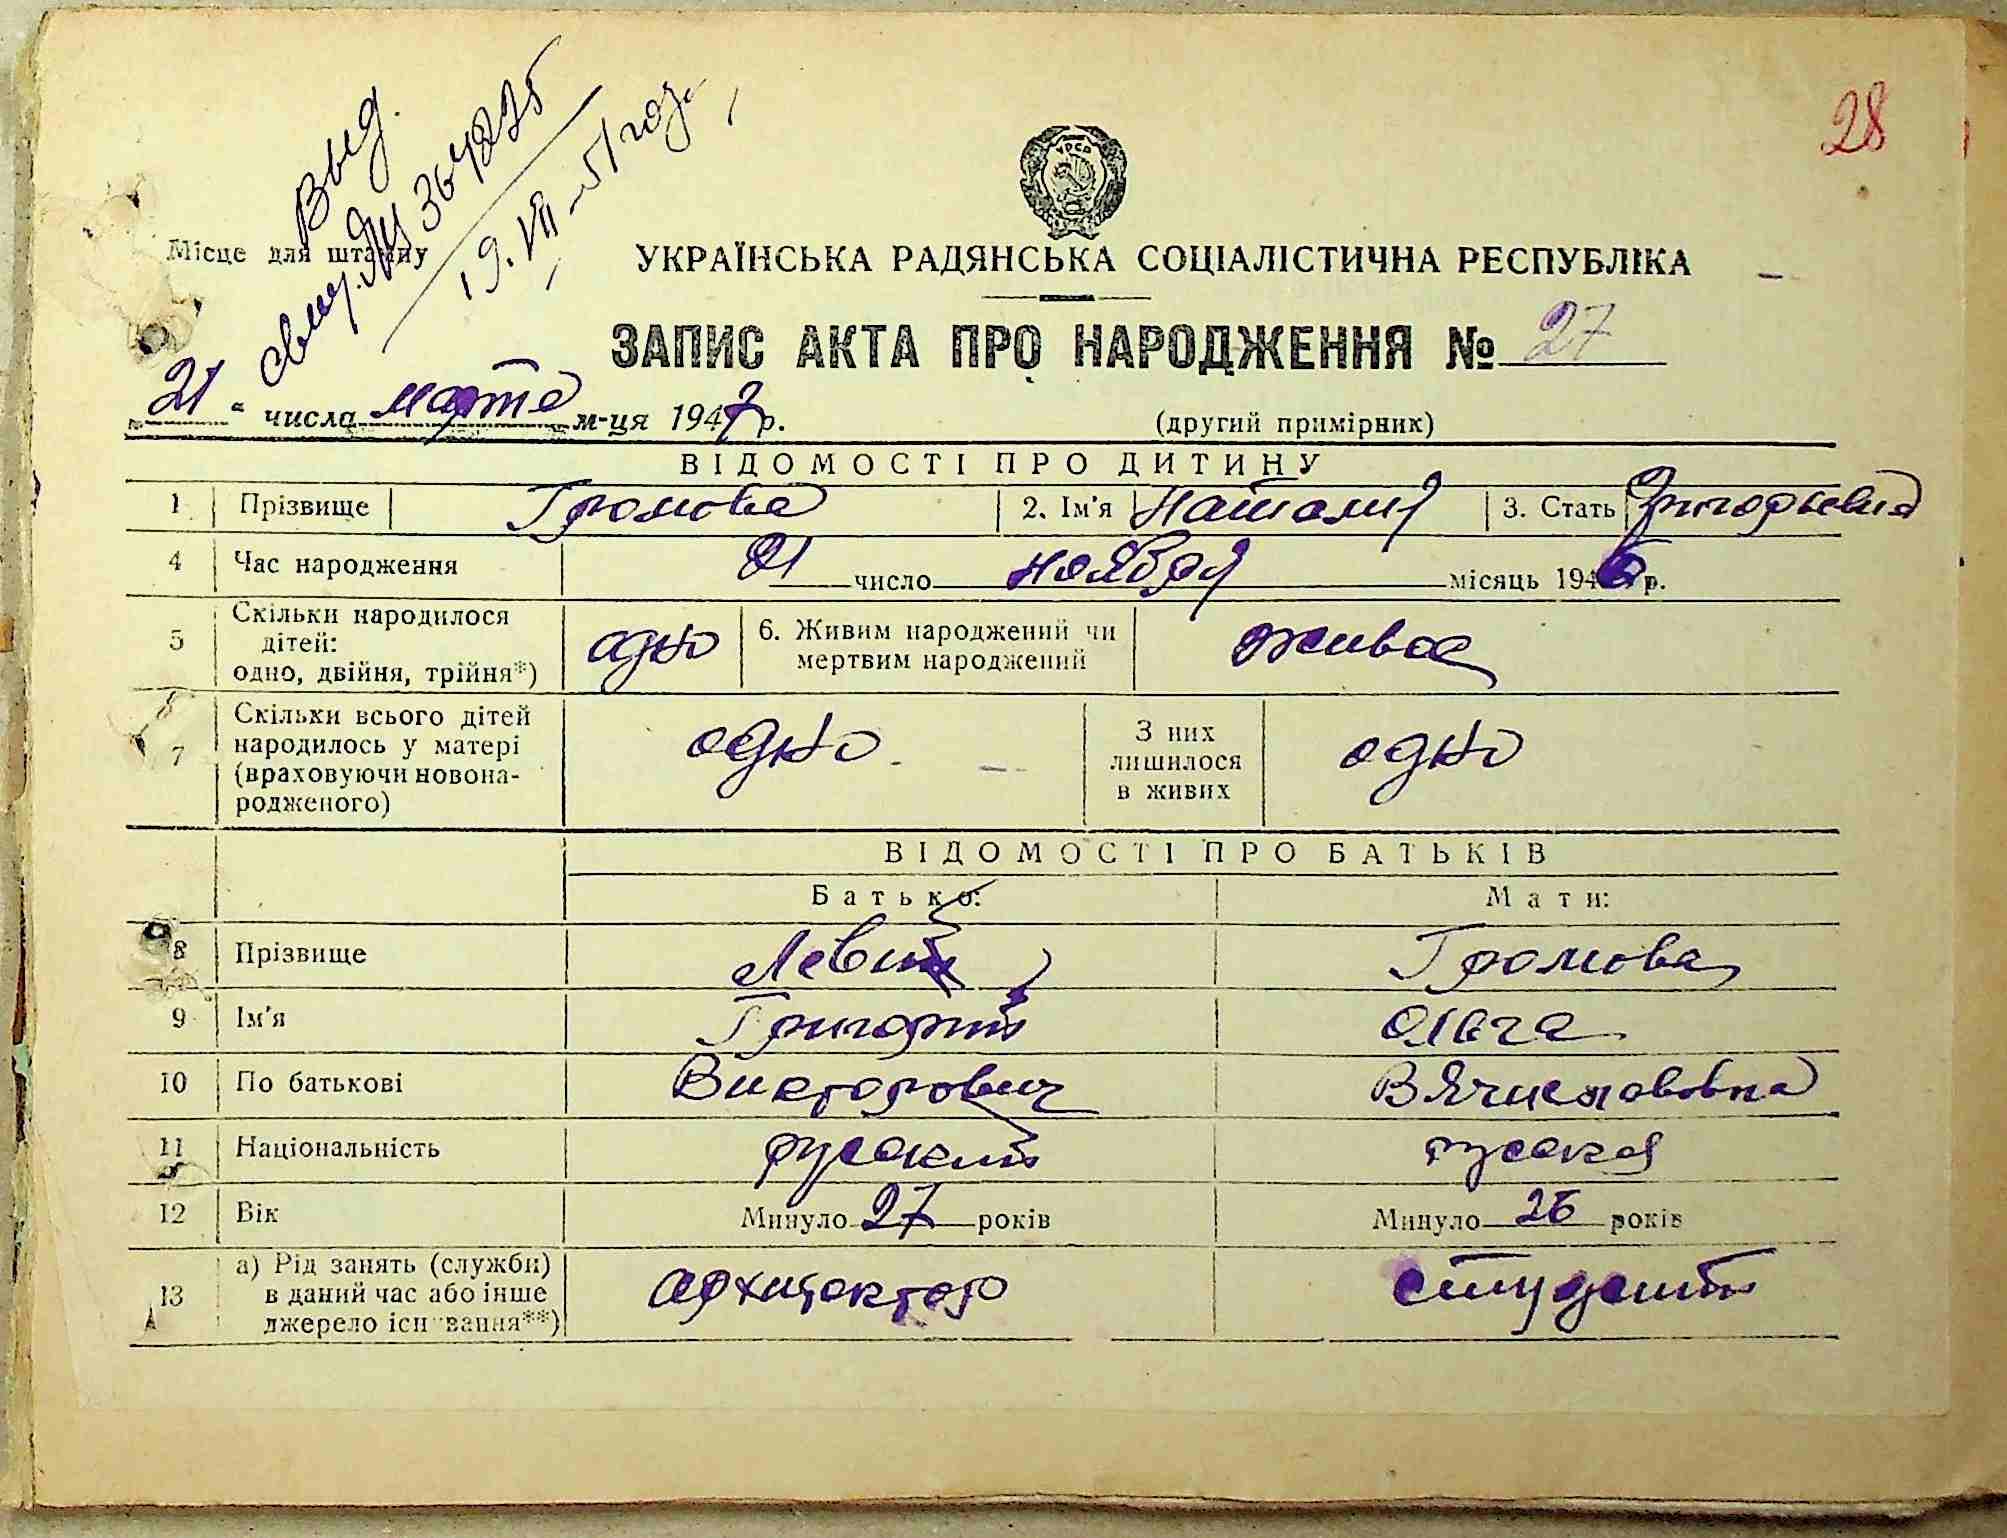 28
Выд.
свид. 364825
19.VII-51 года
УРСР
Місце для штампу
УКРАЇНСЬКА РАДЯНСЬКА СОЦІАЛІСТИЧНА РЕСПУБЛІКА
ЗАПИС АКТА ПРО НАРОДЖЕННЯ № 27
„21" числа марта м-ця 1947 р. (другий примірник)
ВІДОМОСТІ ПРО ДИТИНУ
1 Прізвище Громова 2. Ім'я Наталия 3. Стать Григорьевна
4 Час народження 21 число ноября місяць 1946 р.
5 Скільки народилося
дітей:
одно, двійня, трійня*) одно 6. Живим народжений чи
мертвим народжений живое
7 Скільки всього дітей
народилось у матері
(враховуючи новона-
родженого) одно З них
лишилося
в живих одно
ВІДОМОСТІ ПРО БАТЬКІВ
Батько: Мати:
8 Прізвище Левит Громова
9 Ім'я Григорий Ольга
10 По батькові Викторович Вячиславовна
11 Національність русский русская
12 Вік Минуло 27 років Минуло 26 років
13 а) Рід занять (служби)
в даний час або інше
джерело існування**) архитектор студент